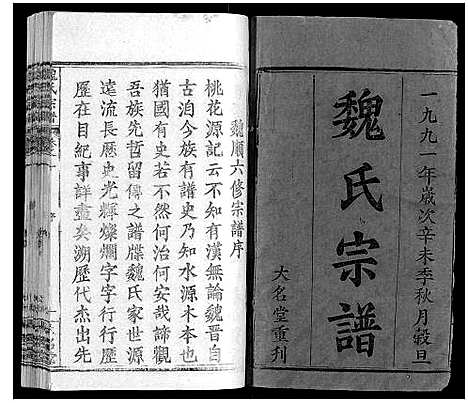 一九九一年歲次辛未季秋月穀旦
魏氏宗譜
大名堂重刋
魏順六修宗譜序
桃花源記云不知有漢無論魏晋自
古洎今族有譜史乃知水源木本也
猶國有史若不然何治何安哉諦觀
吾族先哲留傳之譜牒魏氏家世源
遠流長歷史光輝燦爛字字行行歷
歷在目紀事詳盡矣溯歷代杰出先